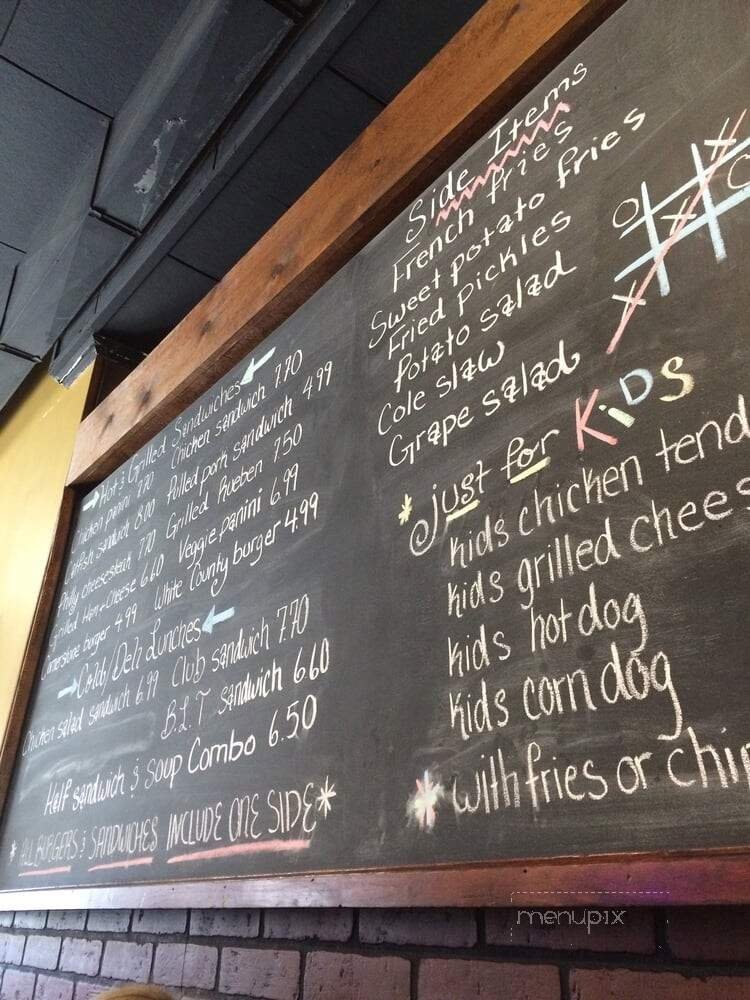 Hot & Grilled Sandwiches
Chicken panini 7.70 Chicken sandwich 7.70
Catfish sandwich 8.00 Pulled pork sandwich 4.99
Philly cheesesteak 7.70 Grilled Rueben 7.50
Grilled Ham & Cheese 6.60 Veggie panini 6.99
Cornerstone burger 4.99 White County burger 4.99
Cold/Deli Lunches
Chicken salad sandwich 6.99 Club sandwich 7.70
B.L.T sandwich 6.60
Half sandwich & soup Combo 6.50
*ALL BURGERS & SANDWICHES INCLUDE ONE SIDE*
Side Items
French fries
Sweet potato fries
Fried pickles
Potato salad
Cole slaw
Grape salad
*just for KiDS
kids chicken tend
kids grilled chees
kids hotdog
kids corndog
*with fries or chi
menupix